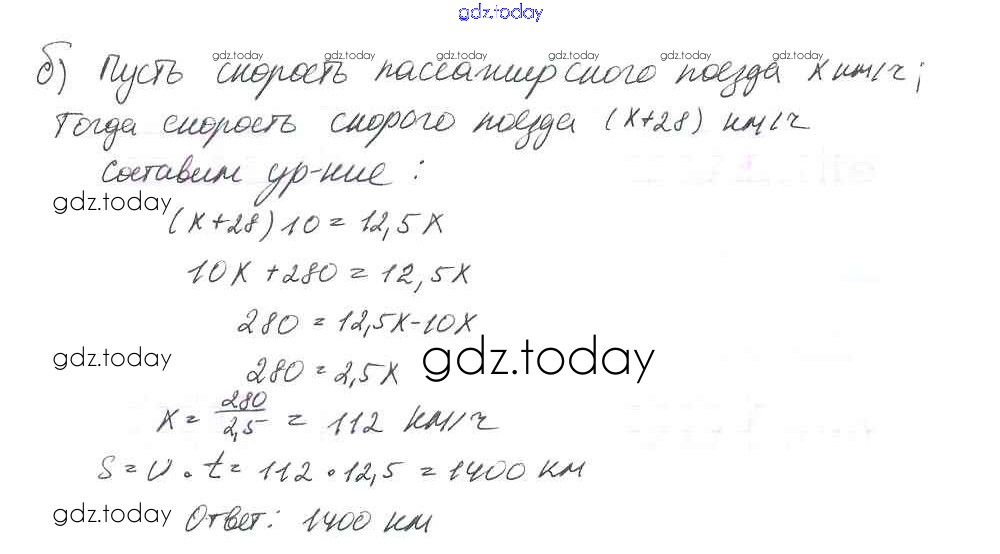 gdz.today
б) Пусть скорость пассажирского поезда x км/ч;
gdz.today gdz.today gdz.today gdz.today gdz.today
Тогда скорость скорого поезда (x+28) км/ч
Составим ур-ние:
gdz.today
(x+28)10=12,5x
10x+280=12,5x
280=12,5x-10x
gdz.today
gdz.today
280=2,5x
x=280/2,5=112 км/ч
S=υ·t=112·12,5=1400 км
gdz.today
Ответ: 1400 км